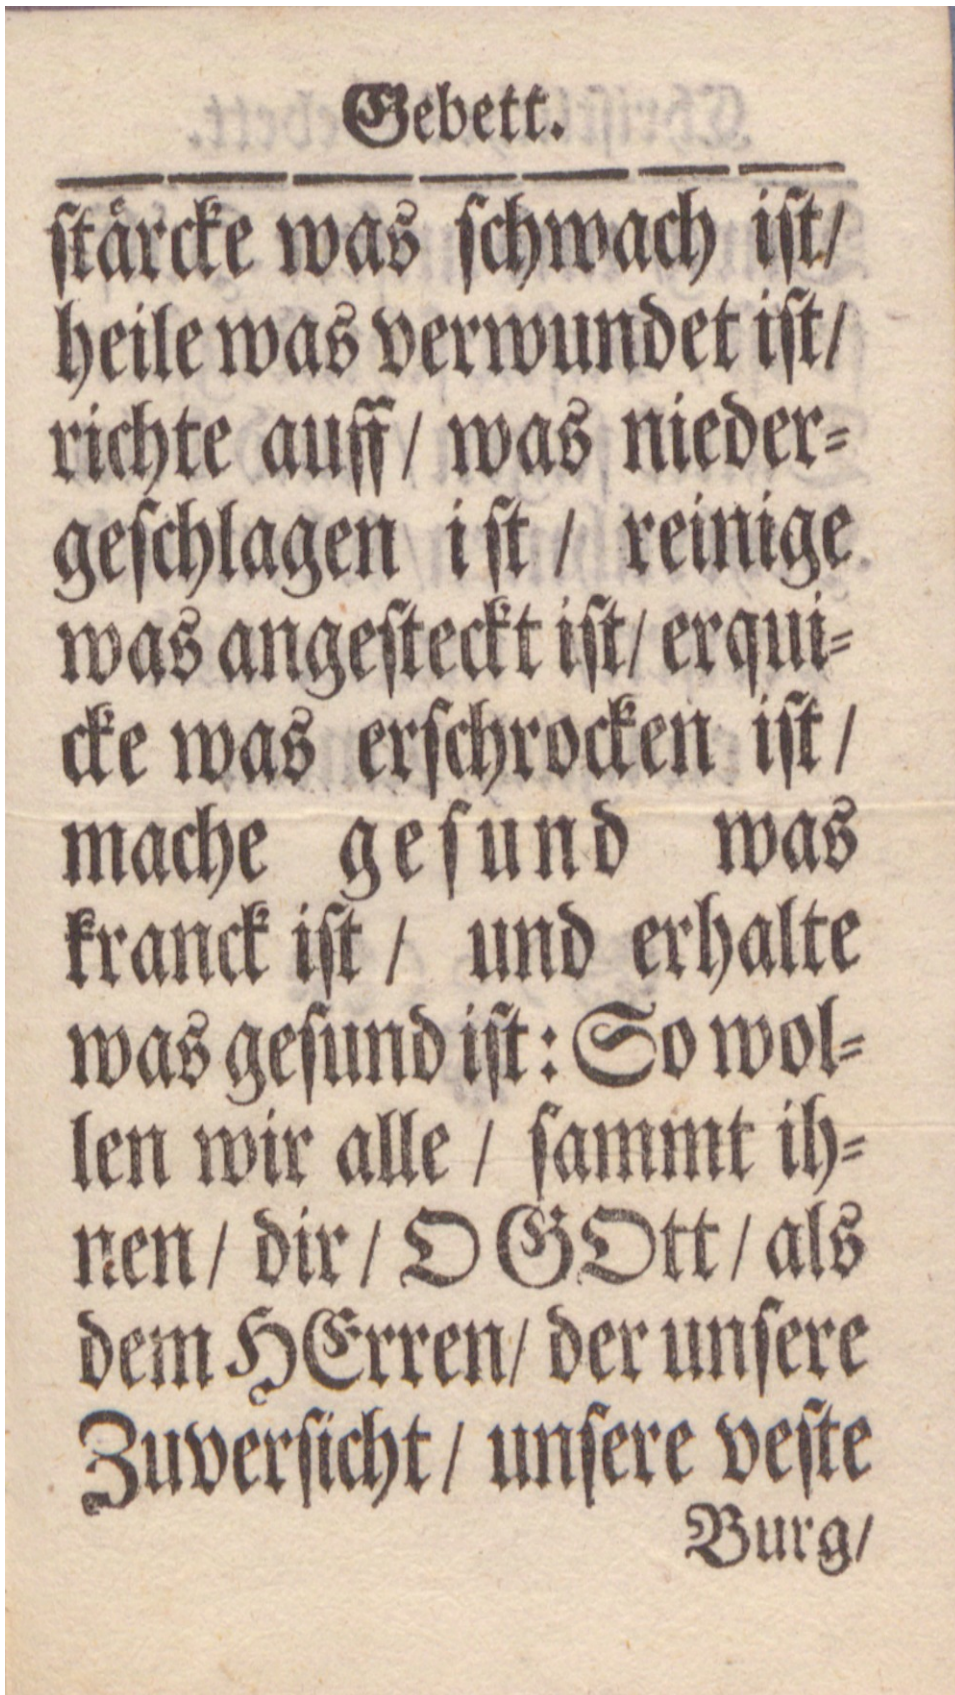 Gebett.
ſtärcke was ſchwach iſt/
heile was verwundet iſt/
richte auff/ was nieder=
geſchlagen iſt / reinige
was angeſteckt iſt/ erqui=
cke was erſchrocken iſt /
mache geſund was
kranck iſt / und erhalte
was geſund iſt: So wol=
len wir alle / ſammt ih=
nen/ dir/ O GOtt / als
dem HErren/ der unſere
Zuverſicht / unſere veſte
Burg/